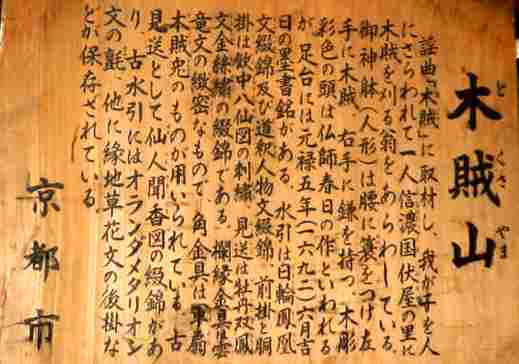 木賊山
とくさやま
謡曲「木賊」に取材し、我が子を人
にさらわれて一人信濃国伏屋の里に
木賊を刈る翁をあらわしている。
御神躰(人形)は腰に簑をつけ左
手に木賊、右手に鎌を持つ。木彫
彩色の頭は仏師春日の作といわれる
が、足台には元禄五年(一六九二)六月吉
日の墨書銘がある。水引は日輪鳳凰
文綴錦及び道釈人物文綴錦、前掛と胴
掛は飲中八仙図の刺繍、見送は牡丹双鳳
文金絲繍の綴錦である。欄縁金具は雲
竜文の緻密なもので、角金具は軍扇
木賊兎のものが用いられている。古
見送として仙人聞香図の綴錦があ
り、古水引にはオランダメタリオン
文の氈、他に緑地草花文の後掛な
どが保存されている。
京都市